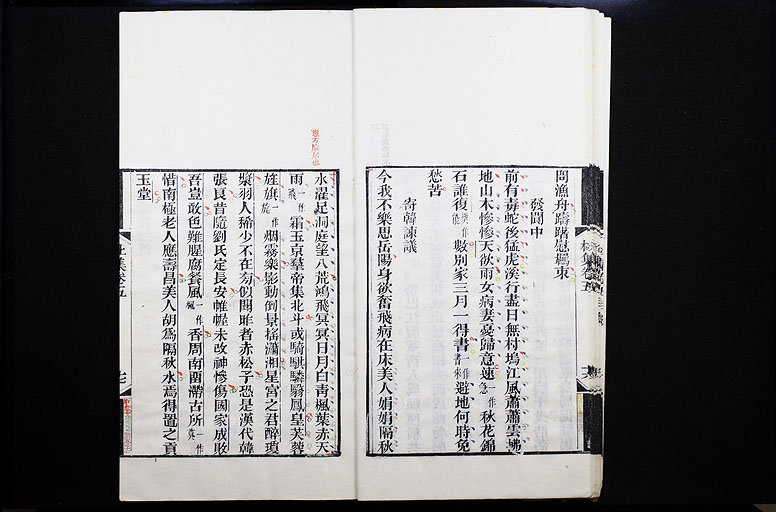 問漁舟躊躇慰羈束
發閬中
前有毒蛇後猛虎溪行盡日無村塢江風蕭蕭雲拂
地山木慘慘天欲雨女病妻憂歸意速一作急秋花錦
石誰復一作能數別家三月一得書書一作來避地何時免
愁苦
寄韓諫議
今我不樂思岳陽身欲奮飛病在床美人娟娟隔秋
水濯足洞庭望八荒鴻飛冥冥日月白青楓葉赤天
雨一作飛霜玉京羣帝集北斗或騎騏驎翳鳳皇芙蓉
旌旗一作旄烟霧樂影動倒景搖瀟湘星宮之君醉瓊
漿羽人稀少不在旁似聞昨者赤松子恐是漢代韓
張良昔隨劉氏定長安帷幄未改神慘傷國家成敗
吾豈敢色難腥腐餐風一作楓香周南留滯古所一作莫
惜南極老人應壽昌美人胡為隔秋水焉得置之貢
玉堂
杜集卷五